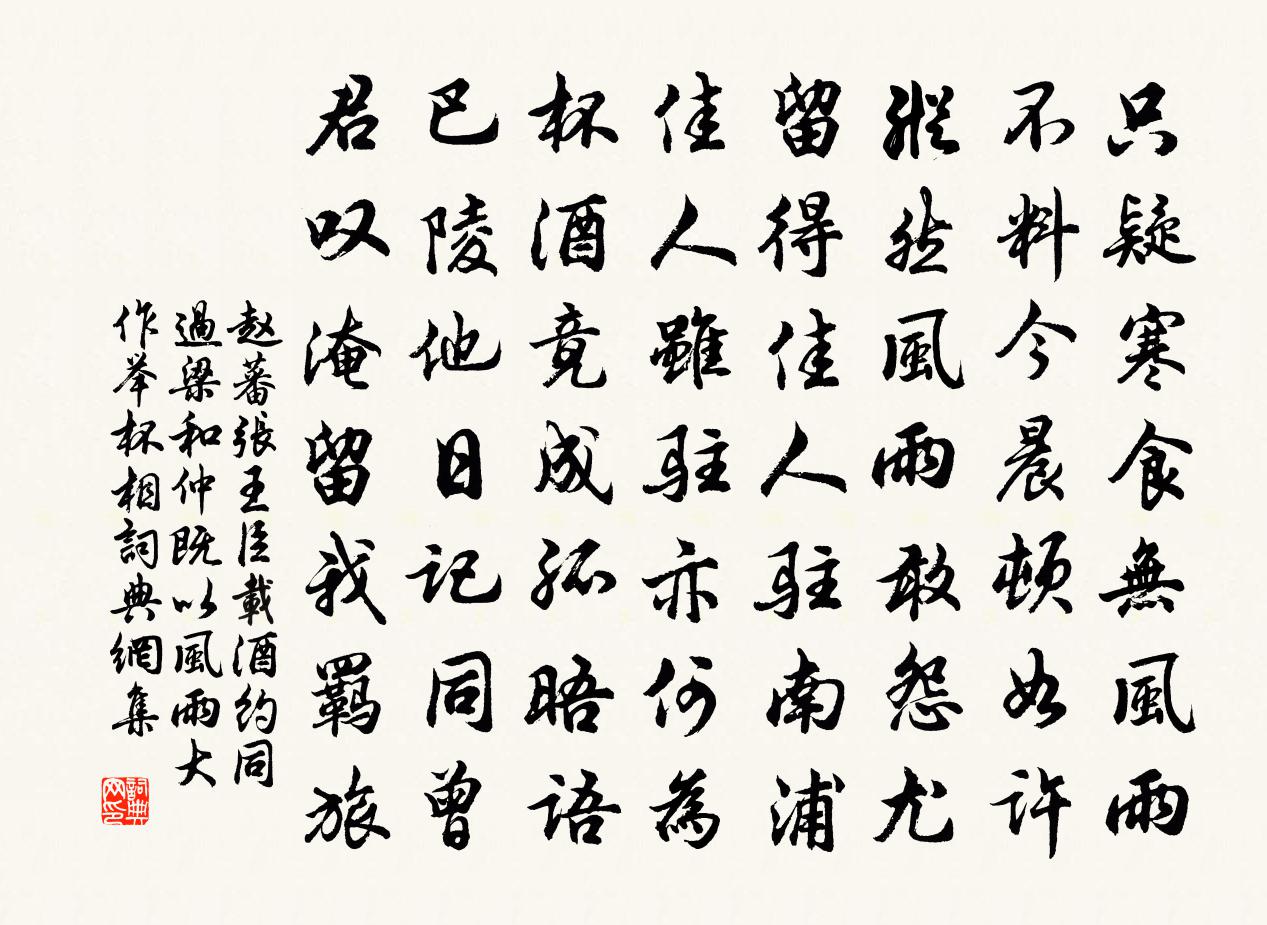 只疑寒食無風雨
不料今晨頓如許
縱然風雨敢怨尤
留得佳人駐南浦
佳人雖駐亦何為
杯酒竟成孤晤語
巴陵他日記同曾
君叹淹留我羈旅
赵蕃張王臣載酒約同
過梁和仲既以風雨大
作举杯相詞典網集
詞典
网印